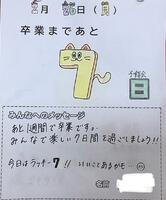 2月26日(月)
卒業まであと
7
予備会
日
みんなへのメッセージ
あと1週間で卒業です。
みんなで楽しい7日間を過ごしましょう!!
今日はラッキー7!! いいことあるかも…
名前